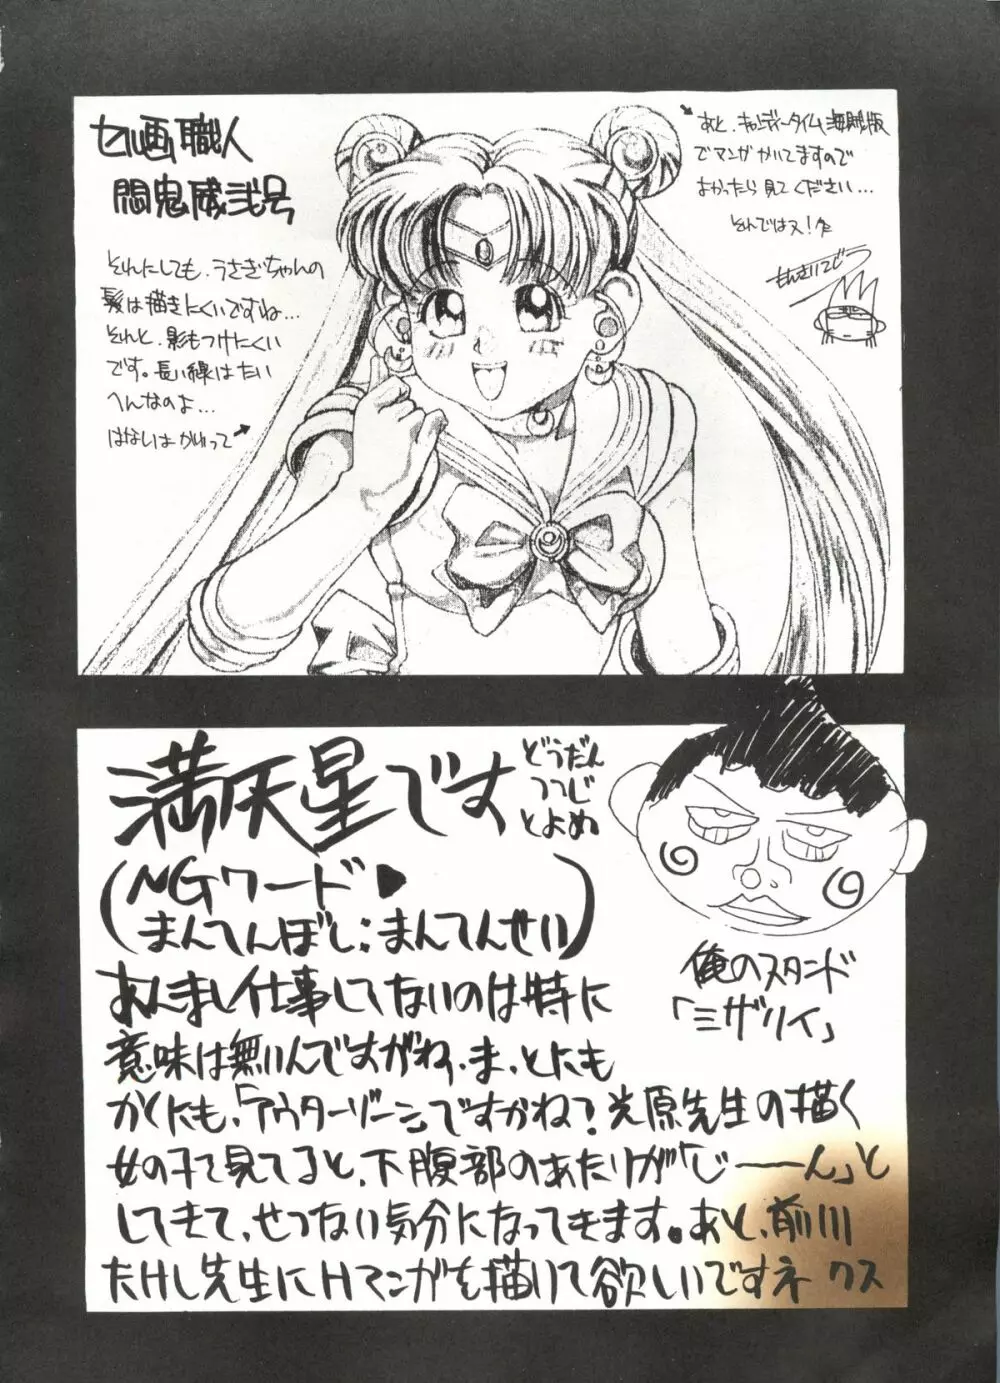 セル画職人
悶鬼威弐号
それにしても、うさぎちゃんの
髪は描きにくいですね…
それと、影もつけにくい
です。長い線はたい
へんなのよ…
はなしはかわって
あと、キャンディータイム海賊版
でマンガかいてますので
よかったら見てください…
そんではヌ!
もんきいにごう
満天星です
どうだん
つつじ
とよめ
(NGワード♥
まんてんぼし:まんてんせい)
あんまし仕事してないのは特に
意味は無いんですがね、ま、とにも
かくにも、「アウターゾーン」ですかね?光原先生の描く
女の子て見てると、下腹部のあたりが「じーーん」と
してきて、せつない気分になってきます。あと、前川
たけし先生にHマンガを描いて欲しいですネ クス
俺のスタンド
「ミザリィ」